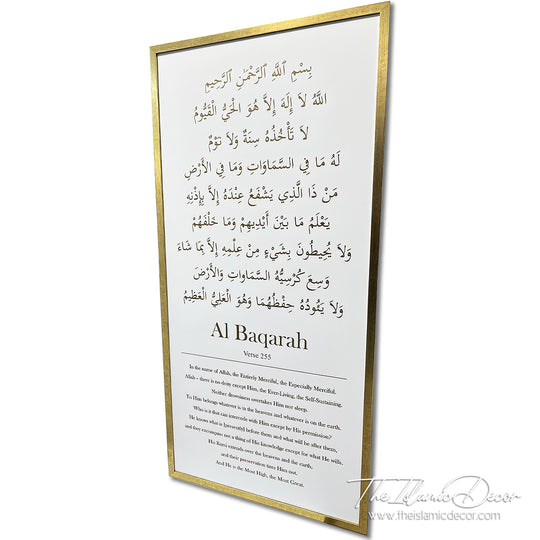 بِسْمِ ٱللَّهِ ٱلرَّحْمَٰنِ ٱلرَّحِيمِ
اللَّهُ لَا إِلَهَ إِلَّا هُوَ الْحَيُّ الْقَيُّومُ
لَا تَأْخُذُهُ سِنَةٌ وَلَا نَوْمٌ
لَهُ مَا فِي السَّمَاوَاتِ وَمَا فِي الْأَرْضِ
مَنْ ذَا الَّذِي يَشْفَعُ عِنْدَهُ إِلَّا بِإِذْنِهِ
يَعْلَمُ مَا بَيْنَ أَيْدِيهِمْ وَمَا خَلْفَهُمْ
وَلَا يُحِيطُونَ بِشَيْءٍ مِنْ عِلْمِهِ إِلَّا بِمَا شَاءَ
وَسِعَ كُرْسِيُّهُ السَّمَاوَاتِ وَالْأَرْضَ
وَلَا يَئُودُهُ حِفْظُهُمَا وَهُوَ الْعَلِيُّ الْعَظِيمُ
Al Baqarah
Verse 255
In the name of Allah, the Entirely Merciful, the Especially Merciful.
Allah - there is no deity except Him, the Ever-Living, the Self-Sustaining.
Neither drowsiness overtakes Him nor sleep.
To Him belongs whatever is in the heavens and whatever is on the earth.
Who is it that can intercede with Him except by His permission?
He knows what is (presently) before them and what will be after them,
and they encompass not a thing of His knowledge except for what He wills.
His Kursi extends over the heavens and the earth,
and their preservation tires Him not.
And He is the Most High, the Most Great.
The Islamic Decor
www.theislamicdecor.com